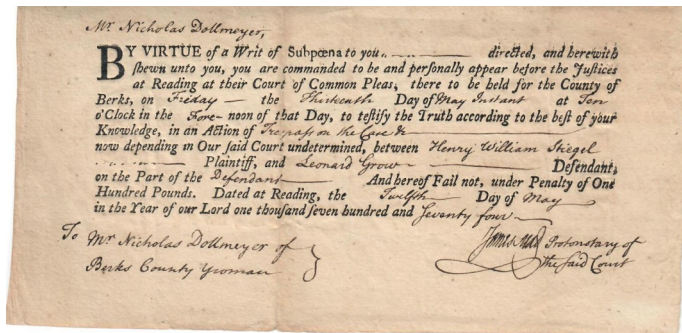 Mr Nicholas Dollmeyer,
BY VIRTUE of a Writ of Subpœna to you directed, and herewith
ſhewn unto you, you are commanded to be and perſonally appear before the Juſtices
at Reading at their Court of Common Pleas, there to be held for the County of
Berks, on Friday — the Thirteenth Day of May Instant at Ten
o'Clock in the Fore- noon of that Day, to teſtify the Truth according to the beſt of your
Knowledge, in an Action of Treſpaſs on the Caſe &
now depending in Our ſaid Court undetermined, between Henry William Stiegel
Plaintiff, and Leonard Grow — Defendant,
on the Part of the Defendant — And hereof Fail not, under Penalty of One
Hundred Pounds. Dated at Reading, the Twelfth Day of May
in the Year of our Lord one thouſand ſeven hundred and Seventy four —
To Mr Nicholas Dollmeyer of
Berks County Yeoman
James Protonotary of
the ſaid Court